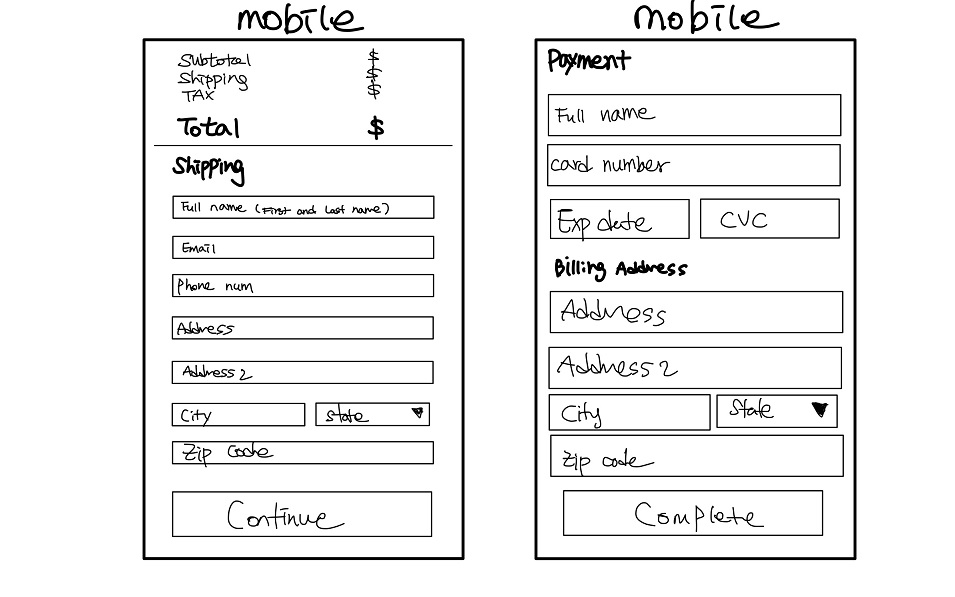 mobile
Subtotal $
Shipping $
TAX $
Total $
Shipping
Full name (First and Last name)
Email
Phone num
Address
Address 2
City State
Zip Code
Continue
mobile
Payment
Full name
card number
Exp date CVC
Billing Address
Address
Address 2
City State
Zip code
Complete